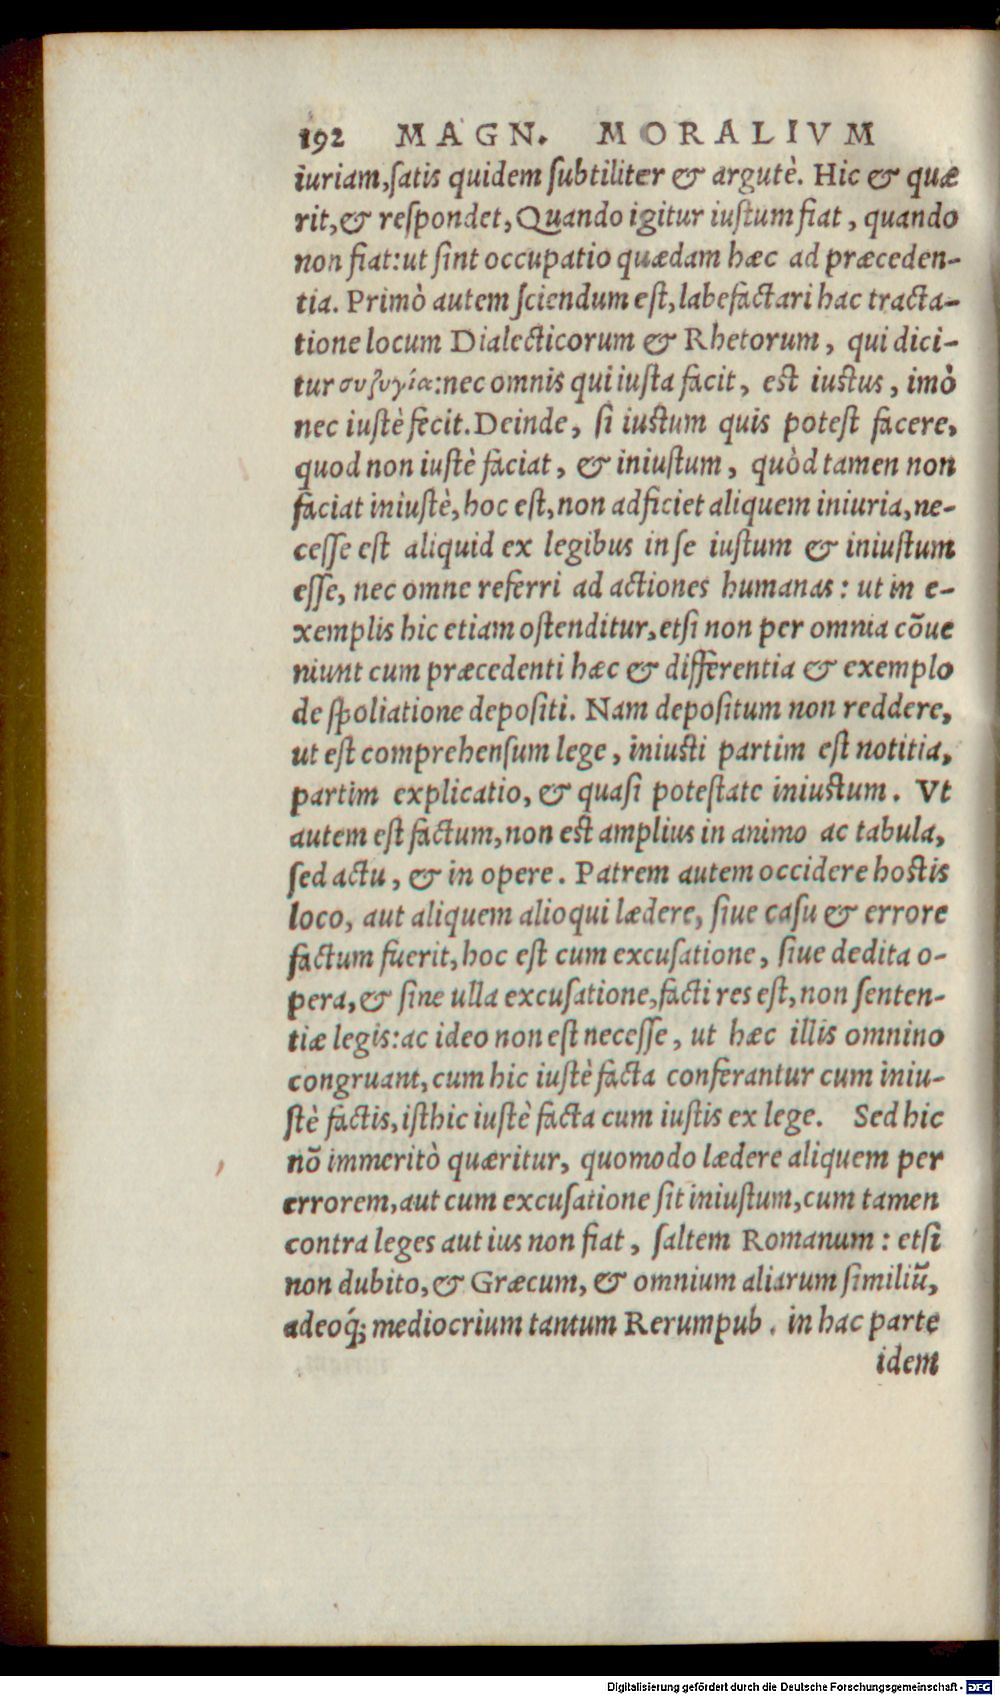 192 MAGN. MORALIVM
iuriam,ſatis quidem ſubtiliter & argutè. Hic & quæ
rit,& reſpondet,Quando igitur iuſtum fiat, quando
non fiat:ut ſint occupatio quædam hæc ad præceden-
tia. Primò autem ſciendum eſt,labefactari hac tracta-
tione locum Dialecticorum & Rhetorum, qui dici-
tur συζυγία:nec omnis qui iuſta facit, est iustus, imò
nec iuſtè fecit.Deinde, ſi iustum quis poteſt facere,
quod non iuſtè faciat, & iniuſtum, quòd tamen non
faciat iniuſtè,hoc eſt,non adficiet aliquem iniuria,ne-
ceſſe eſt aliquid ex legibus in ſe iuſtum & iniuſtum
eſſe, nec omne referri ad actiones humanas: ut in e-
xemplis hic etiam oſtenditur,etſi non per omnia cōue
niunt cum præcedenti hæc & differentia & exemplo
de ſpoliatione depoſiti. Nam depoſitum non reddere,
ut eſt comprehenſum lege, iniusti partim eſt notitia,
partim explicatio, & quaſi poteſtate iniustum. Vt
autem eſt factum,non est amplius in animo ac tabula,
ſed actu, & in opere. Patrem autem occidere hostis
loco, aut aliquem alioqui lædere, ſiue caſu & errore
factum fuerit,hoc eſt cum excuſatione, ſiue dedita o-
pera,& ſine ulla excuſatione,facti res eſt,non ſenten-
tiæ legis:ac ideo non eſt neceſſe, ut hæc illis omnino
congruant,cum hic iuſtè facta conferantur cum iniu-
ſtè factis,iſthic iuſtè facta cum iuſtis ex lege. Sed hic
nō immeritò quæritur, quomodo lædere aliquem per
errorem,aut cum excuſatione ſit iniuſtum,cum tamen
contra leges aut ius non fiat, ſaltem Romanum: etſi
non dubito,& Græcum, & omnium aliarum ſimiliū,
adeoq́; mediocrium tantum Rerumpub. in hac parte
idem
Digitalisierung gefördert durch die Deutsche Forschungsgemeinschaft - DFG